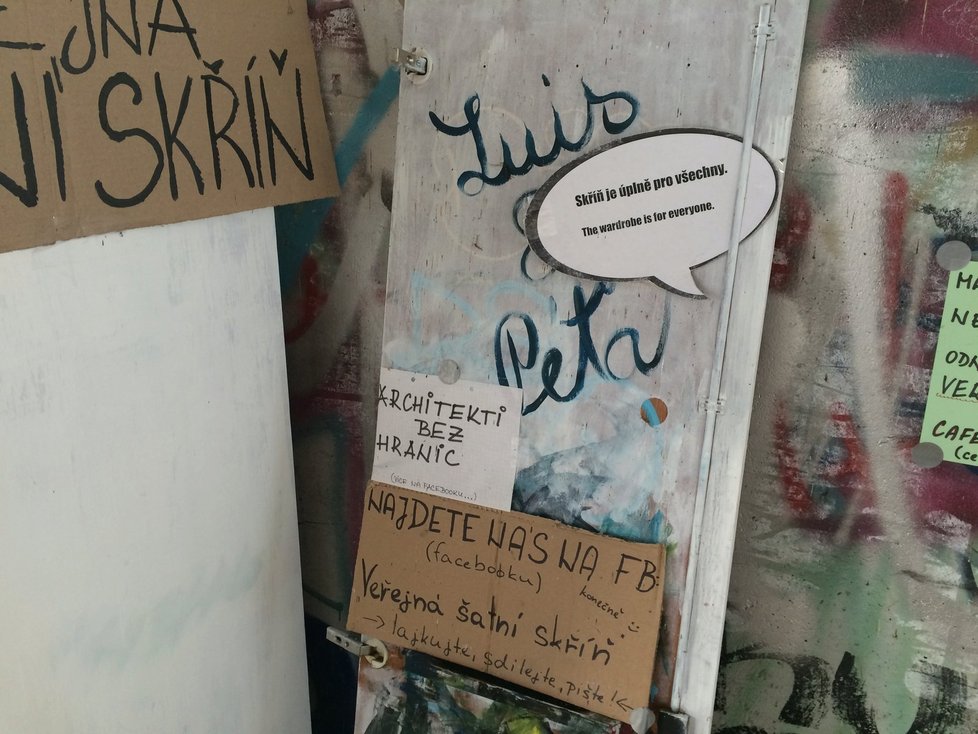 EJNÁ
NÍ SKŘÍŇ
Luis
&
Peťa
Skříň je úplně pro všechny.
The wardrobe is for everyone.
ARCHITEKTI
BEZ
HRANIC
(VÍCE NA FACEBOOKU...)
NAJDETE NÁS NA FB:
(facebooku)
konečně :)
Veřejná šatní skříň
→ lajkujte, sdílejte, pište! ←
MA
NE
ODN
VER
CAFE
(ce